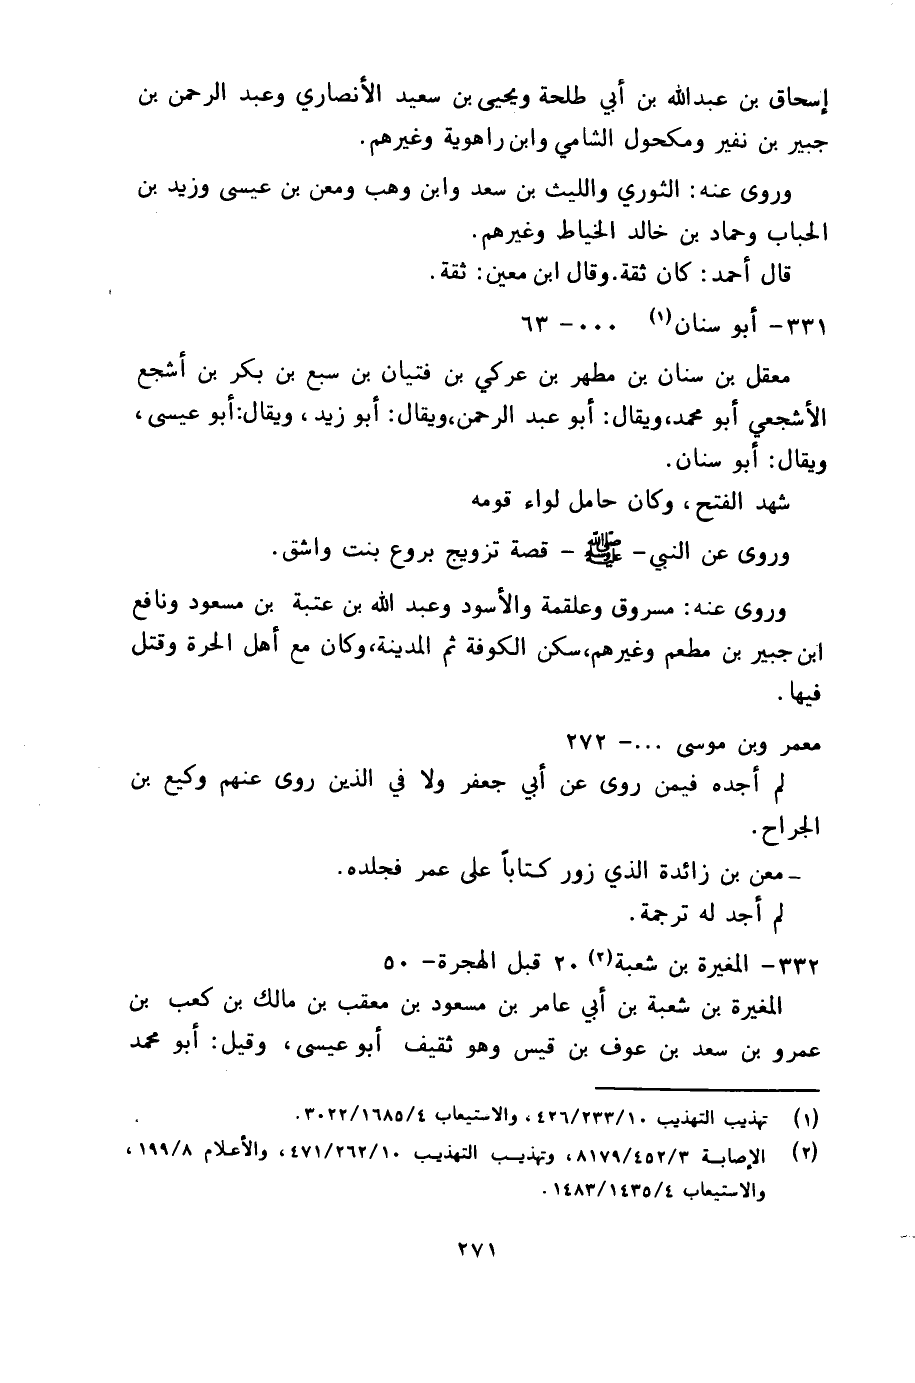 إسحاق بن عبدالله بن أبي طلحة ويحيى بن سعيد الأنصاري وعبد الرحمن بن
جبير بن نفير ومكحول الشامي وابن راهوية وغيرهم.
وروى عنه: الثوري والليث بن سعد وابن وهب ومعن بن عيسى وزيد بن
الحباب وحماد بن خالد الخياط وغيرهم.
قال أحمد: كان ثقة.وقال ابن معين: ثقة.
٣٣١- أبو سنان(١) ٠٠٠- ٦٣
معقل بن سنان بن مطهر بن عركي بن فتيان بن سبع بن بكر بن أشجع
الأشجعي أبو محمد،ويقال: أبو عبد الرحمن،ويقال: أبو زيد، ويقال:أبو عيسى،
ويقال: أبو سنان.
شهد الفتح، وكان حامل لواء قومه
وروى عن النبي- ﷺ - قصة تزويج بروع بنت واشق.
وروى عنه: مسروق وعلقمة والأسود وعبد الله بن عتبة بن مسعود ونافع
ابن جبير بن مطعم وغيرهم،سكن الكوفة ثم المدينة،وكان مع أهل الحرة وقتل
فيها.
معمر وبن موسى ...- ٢٧٢
لم أجده فيمن روى عن أبي جعفر ولا في الذين روى عنهم وكيع بن
الجراح.
- معن بن زائدة الذي زور كتاباً على عمر فجلده.
لم أجد له ترجمة.
٣٣٢- المغيرة بن شعبة(٢) ٢٠ قبل الهجرة- ٥٠
المغيرة بن شعبة بن أبي عامر بن مسعود بن معقب بن مالك بن كعب بن
عمرو بن سعد بن عوف بن قيس وهو ثقيف أبو عيسى، وقيل: أبو محمد
(١) تهذيب التهذيب ٤٢٦/٢٣٣/١٠، والاستيعاب ٣٠٢٢/١٦٨٥/٤.
(٢) الإصابة ٨١٧٩/٤٥٢/٣، وتهذيب التهذيب ٤٧١/٢٦٢/١٠، والأعلام ١٩٩/٨،
والاستيعاب ١٤٨٣/١٤٣٥/٤.
٢٧١